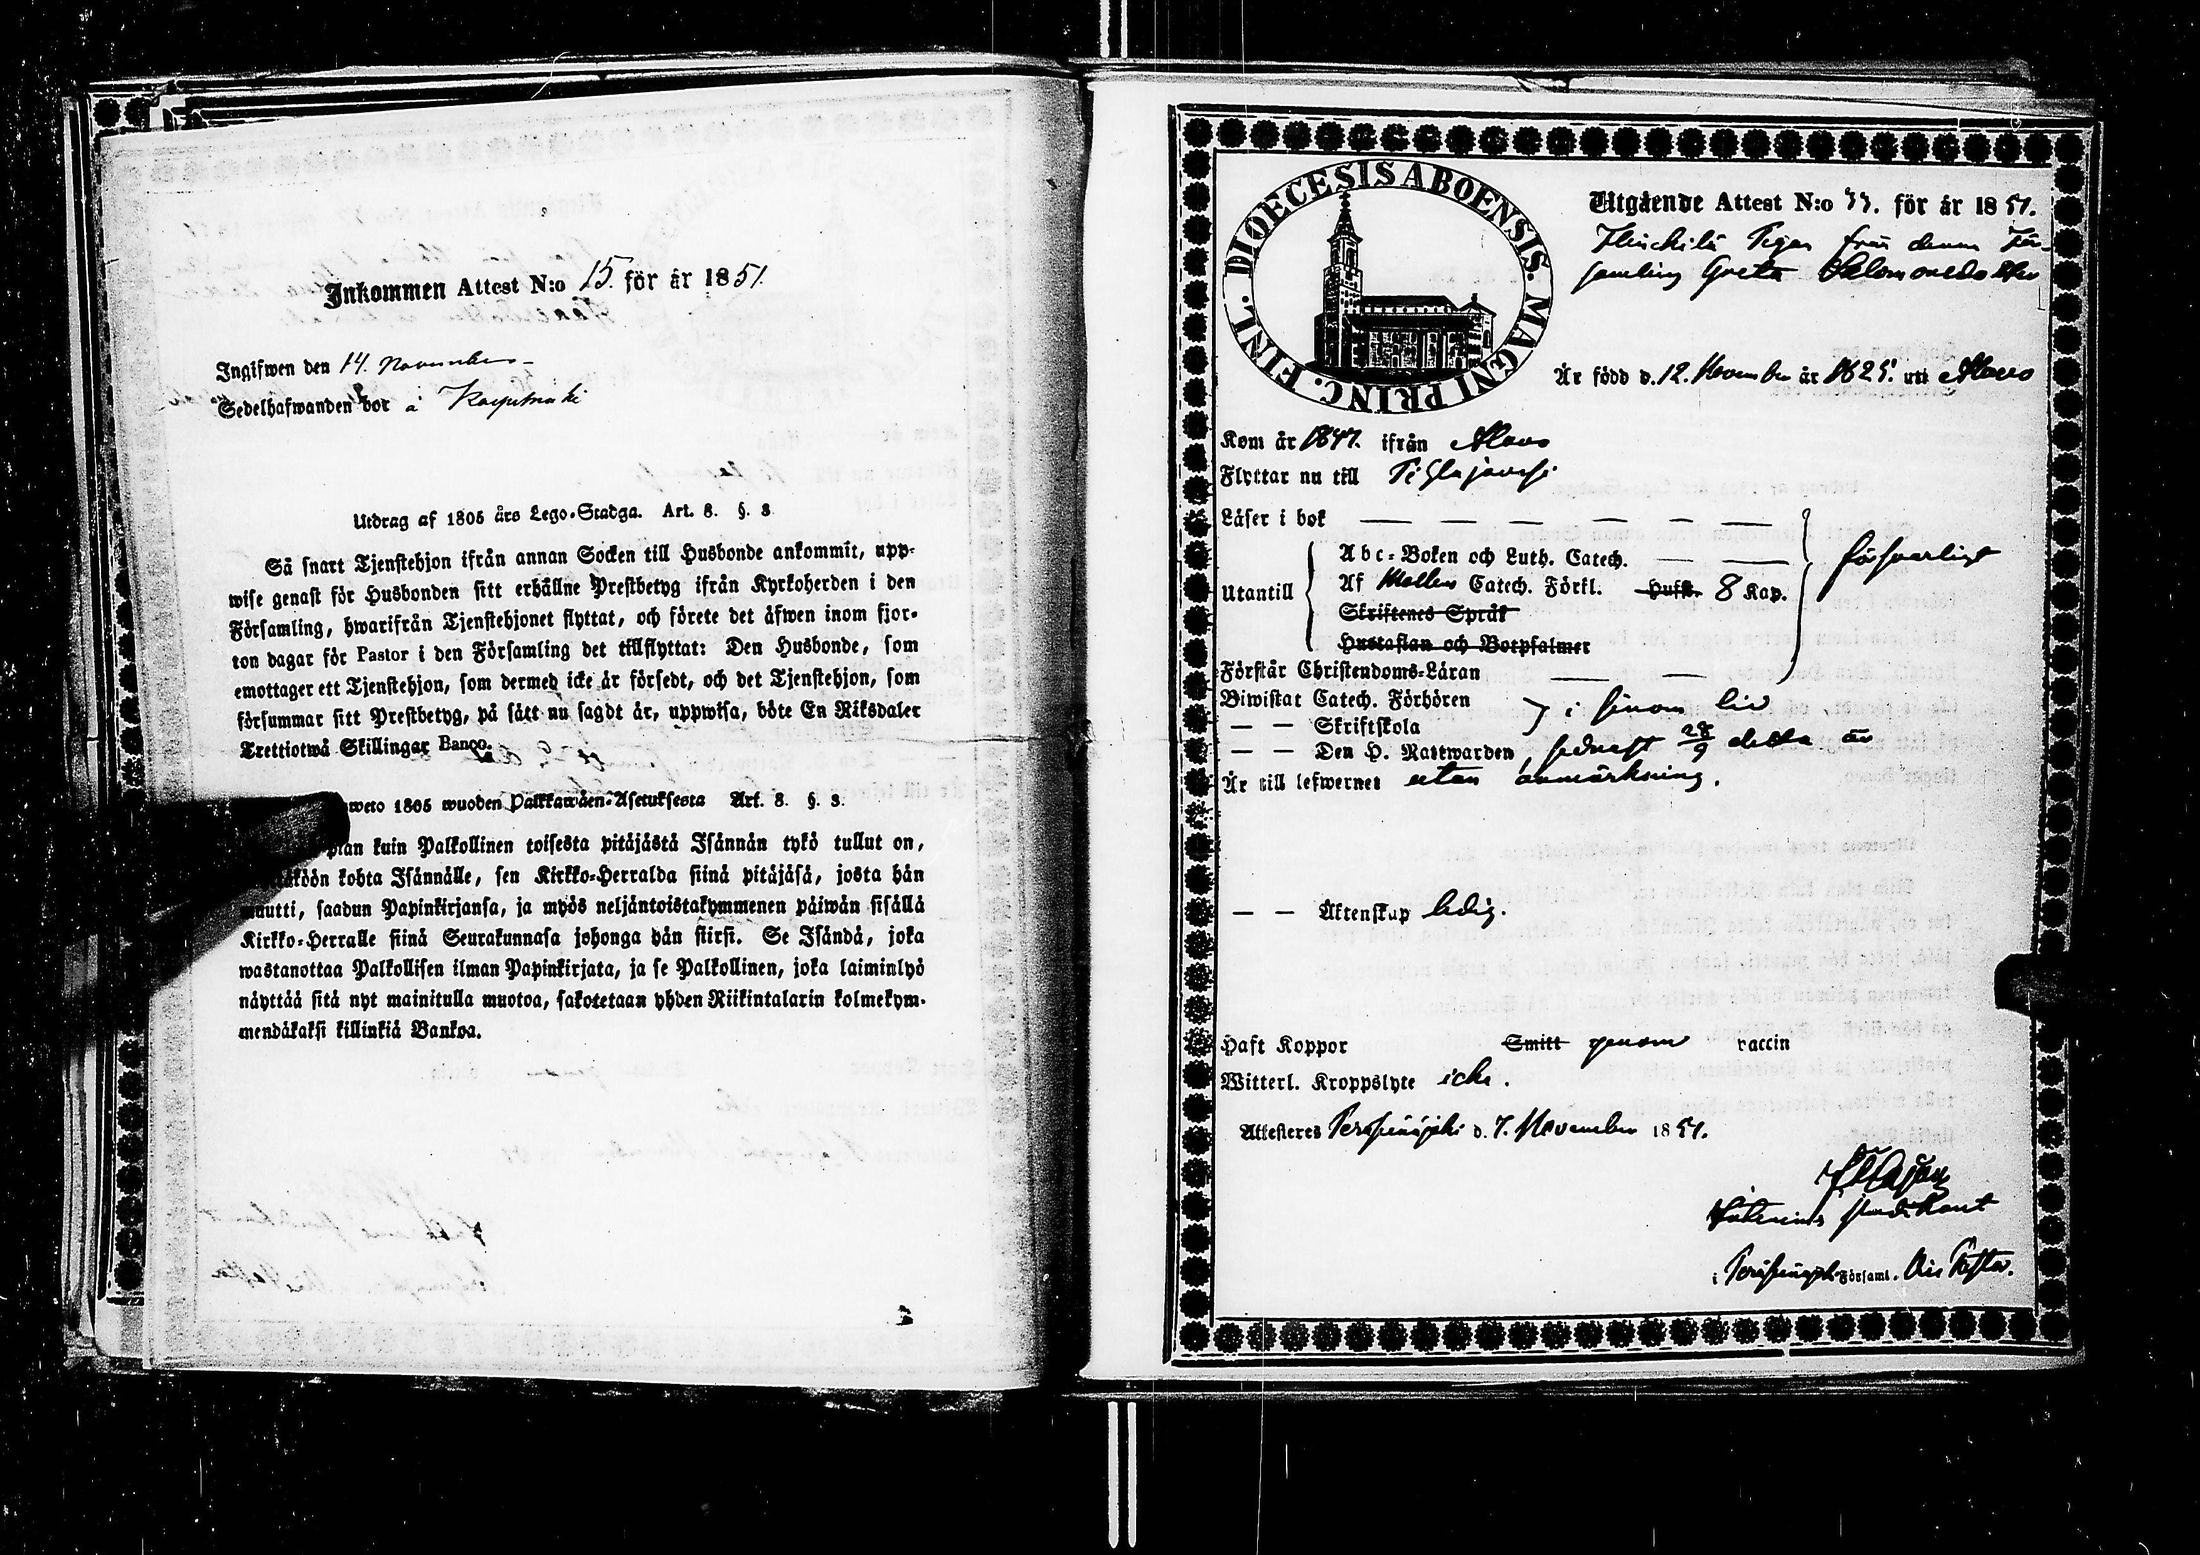 Inkommen Attest N:o 15. för år 1851.
Ingifwen den 14. November
Sedelhafwanden bor å
Utdrag af 1805 års Lego-Stadga. Art. 8. §. 3.
Så snart Tjenstehjon ifrån annan Socken till Husbonde ankommit, upp-
wise genast för Husbonden sitt erhållne Prestbetyg ifrån Kyrkoherden i den
Församling, hwarifrån Tjenstehjonet flyttat, och förete det äfwen inom fjor-
ton dagar för Pastor i den Församling det tillflyttat: Den Husbonde, som
emottager ett Tjenstehjon, som dermed icke är försedt, och det Tjenstehjon, som
försummar sitt Prestbetyg, på sätt nu sagdt är, uppwisa, böte En Riksdaler
Trettiotwå Skillingar Banco.
weto 1805 wuoden Palkkawäen-Asetuksesta Art. 8. §. 3.
pian kuin Palkollinen toisesta pitäjästä Isännän tykö tullut on,
köön kohta Isännälle, sen Kirkko-Herralda siinä pitäjäsä, josta hän
muutti, saadun Papinkirjansa, ja myös neljäntoistakymmenen päiwän sisällä
Kirkko-Herralle siinä Seurakunnasa johonga hän siirsi. Se Isändä, joka
wastanottaa Palkollisen ilman Papinkirjata, ja se Palkollinen, joka laiminlyö
näyttää sitä nyt mainitulla muotoa, sakotetaan yhden Riikintalarin kolmekym-
mendäkaksi killinkiä Bankoa.
DIOECESIS ABOENSIS. MAGNI PRINC. FINL.
Utgående Attest N:o 33. för år 1851.
Pigan från denna För-
samling Greta Salomonsdotter
Är född d. 12. November år 1825. uti Alavo
Kom år 1847. ifrån Alavo
Flyttar nu till Pihlajavesi
Läser i bok
Utantill
Abc-Boken och Luth. Catech.
Af Möllers Catech. Förkl. Huft. 8 Kap.
Skriftenes Språk
Hustaflan och Botpsalmer
försvarligt
Förstår Christendoms-Läran
Biwistat Catech. Förhören
— — Skriftskola
i sinom tid
— — Den H. Nattwarden, sednast 28/9 detta år
Är till lefwernet utan anmärkning.
— — Äktenskap ledig.
Haft Koppor Smitt genom vaccin
Witterl. Kroppslyte icke.
Attesteras Peräseinäjoki d. 7. November 1851.
i Peräseinäjoki Församl.